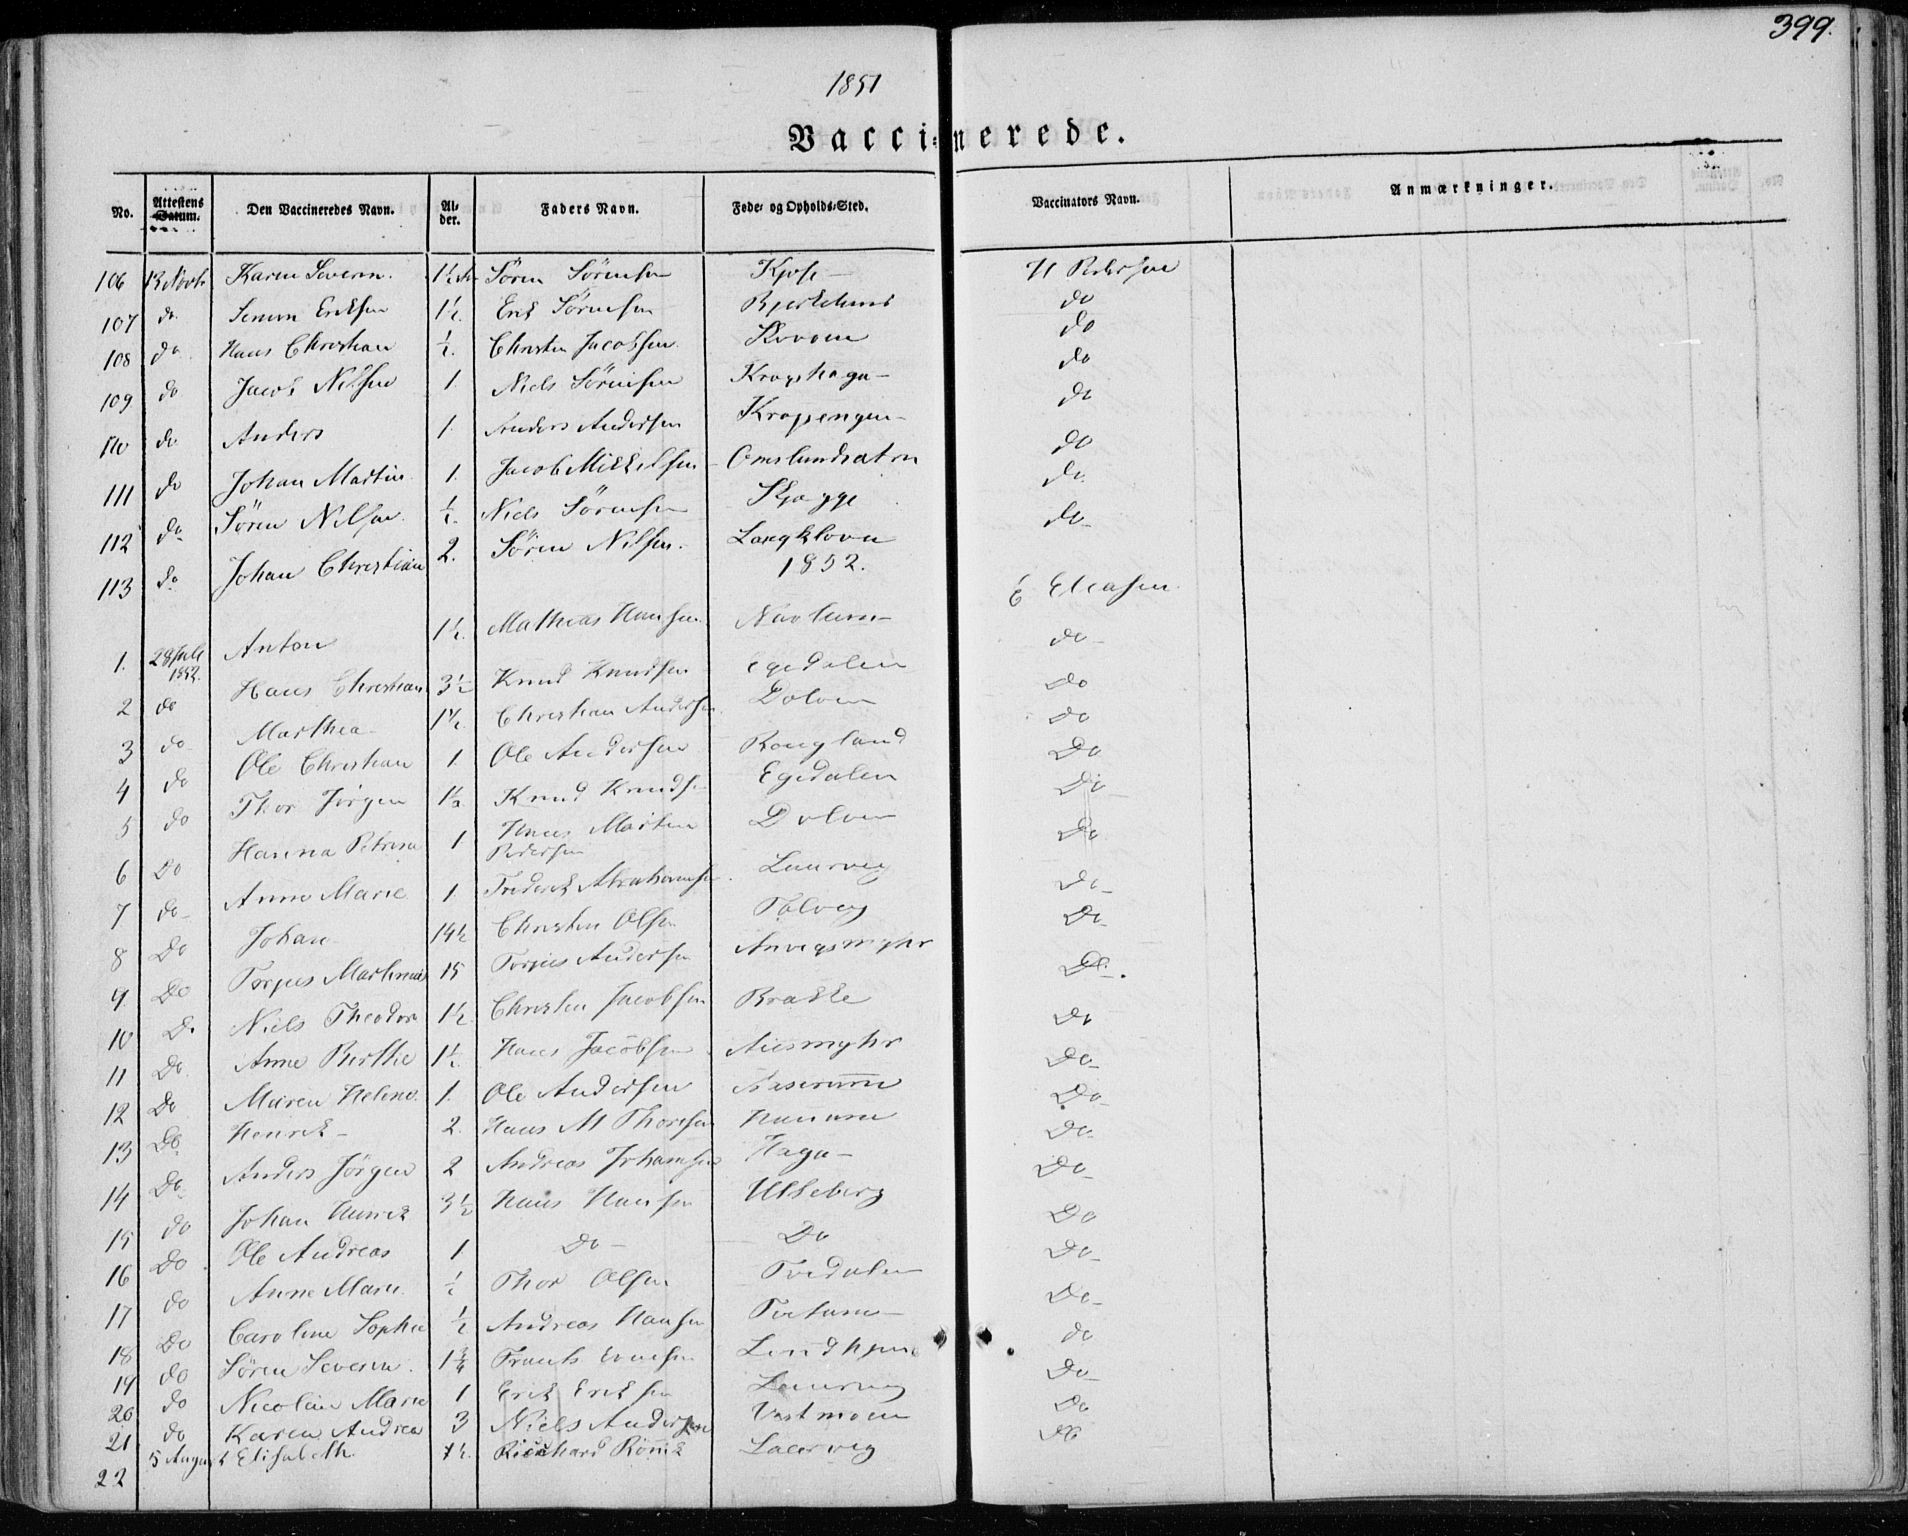 399.
1851
Vaccinerede.
No. Attestens Datum. Den Vaccineredes Navn. Alder. Faders Navn. Føde- og Opholds-Sted. Vaccinators Navn. Anmærkninger.
106 13 Novbr Karen Severin. 1½ Sören Sörensen Kjose H Pedersen
107 do Simon Eriksen 1½ Erik Sörensen do
108 do Hans Christian ½ Christen Jacobsen do
109 do Jacob Nilsen 1 Niels Sörensen Kragshaga do
110 do Anders 1. Anders Andersen Kragsengen do
111 do Johan Martin 1. Jacob Mikkelsen Omslundsætra do
112 do Sören Nilsen ½ Niels Sörensen Skjegge do
113 do Johan Christian 2. Sören Nilsen. Langkloven do
1852.
1. 28 Juli 1852. Anton 1½ Mathias Hansen Navlum E Eliasen
2 do Hans Christian 3½ Knud Knudsen Egedalen do
3 do Marthea 1½ Christian Andersen Dolven do
4 do Ole Christian 1 Ole Andersen Rougland do
5 do Thor Jörgen 1½ Knud Knudsen Egedalen Do
6 Do Hanna Petrina 1 Hans Martin Pedersen Dolven Do
7 do Anne Marie 1 Frederik Abrahamsen Laurvig Do
8 Do Johan 14½ Christen Olsen Tolvey Do
9 Do Torjus Martinius 15 Torjus Andersen Anvigsmyhr Do
10 Do Niels Theodor 1½ Christen Jacobsen Brakke Do.
11 Do Anne Berthe 1½ Hans Jacobsen Aiesmyhr Do
12 Do Maren Helene 1. Ole Andersen Aaserum Do
13 Do Henrik 2. Hans M Thoresen Hanum Do
14 Do Anders Jörgen 2 Andreas Johansen Haga Do
15 do Johan Henrik 3½ Hans Hansen Ulseberg Do
16 Do Ole Andreas 1 Do Do Do
17 do Anne Marie ½ Thor Olsen Tvedalen Do
18 Do Caroline Sophie ½ Andreas Hansen Tvetum Do
19 do Sören Severin. 1¾ Frants Evensen Lindhjem do
20 do Nicoline Marie 1 Erik Eriksen Laurvig Do
21 do Karen Andrea 3 Niels Andersen Vestmoen Do
22 5 August Elisabeth 1½. Richard Rönnek Laurvig Do